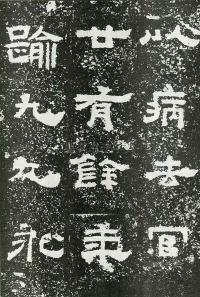 以病去官
廿有餘年
踰九九永